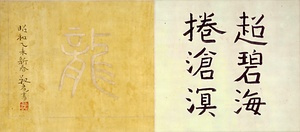 超碧海
捲滄溟
龍
昭和乙未新春